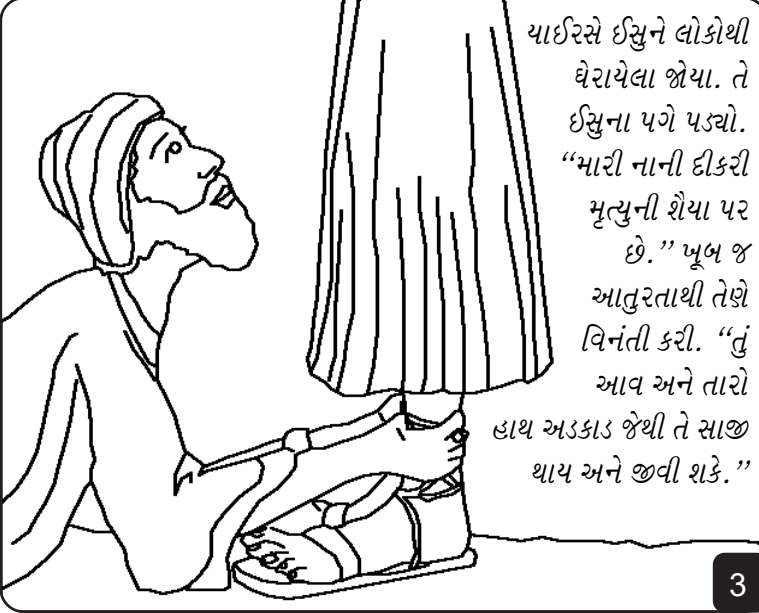 યાઈરસે ઈસુને લોકોથી
ઘેરાયેલા જોયા. તે
ઈસુના પગે પડ્યો.
“મારી નાની દીકરી
મૃત્યુની શૈયા પર
છે.” ખૂબ જ
આતુરતાથી તેણે
વિનંતી કરી. “તું
આવ અને તારો
હાથ અડકાડ જેથી તે સાજી
થાય અને જીવી શકે.”
3